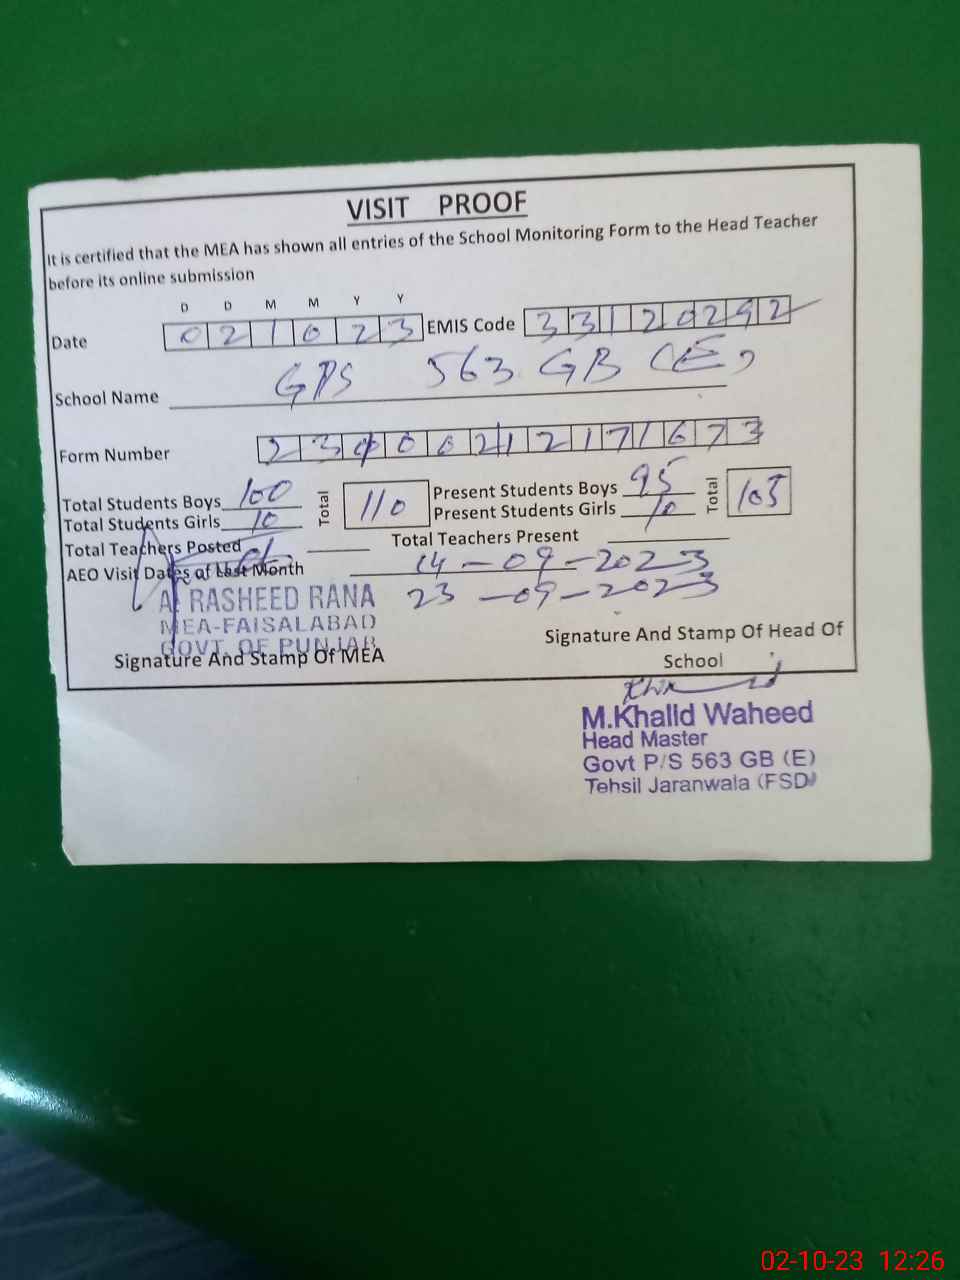 VISIT PROOF
It is certified that the MEA has shown all entries of the School Monitoring Form to the Head Teacher
before its online submission
D D M M Y Y
Date 0 2 1 0 2 3 EMIS Code 3 3 1 2 0 2 9 2
School Name GPS 563 GB (E)
Form Number
Total Students Boys 100 Total 110 Present Students Boys 95 Total 105
Total Students Girls 10 Present Students Girls 10
Total Teachers Posted Total Teachers Present
AEO Visit Dates of Last Month 14-09-2023
23-09-2023
A. RASHEED RANA
MEA-FAISALABAD
GOVT. OF PUNJAB
Signature And Stamp Of MEA
Signature And Stamp Of Head Of
School
M.Khalid Waheed
Head Master
Govt P/S 563 GB (E)
Tehsil Jaranwala (FSD)
02-10-23 12:26